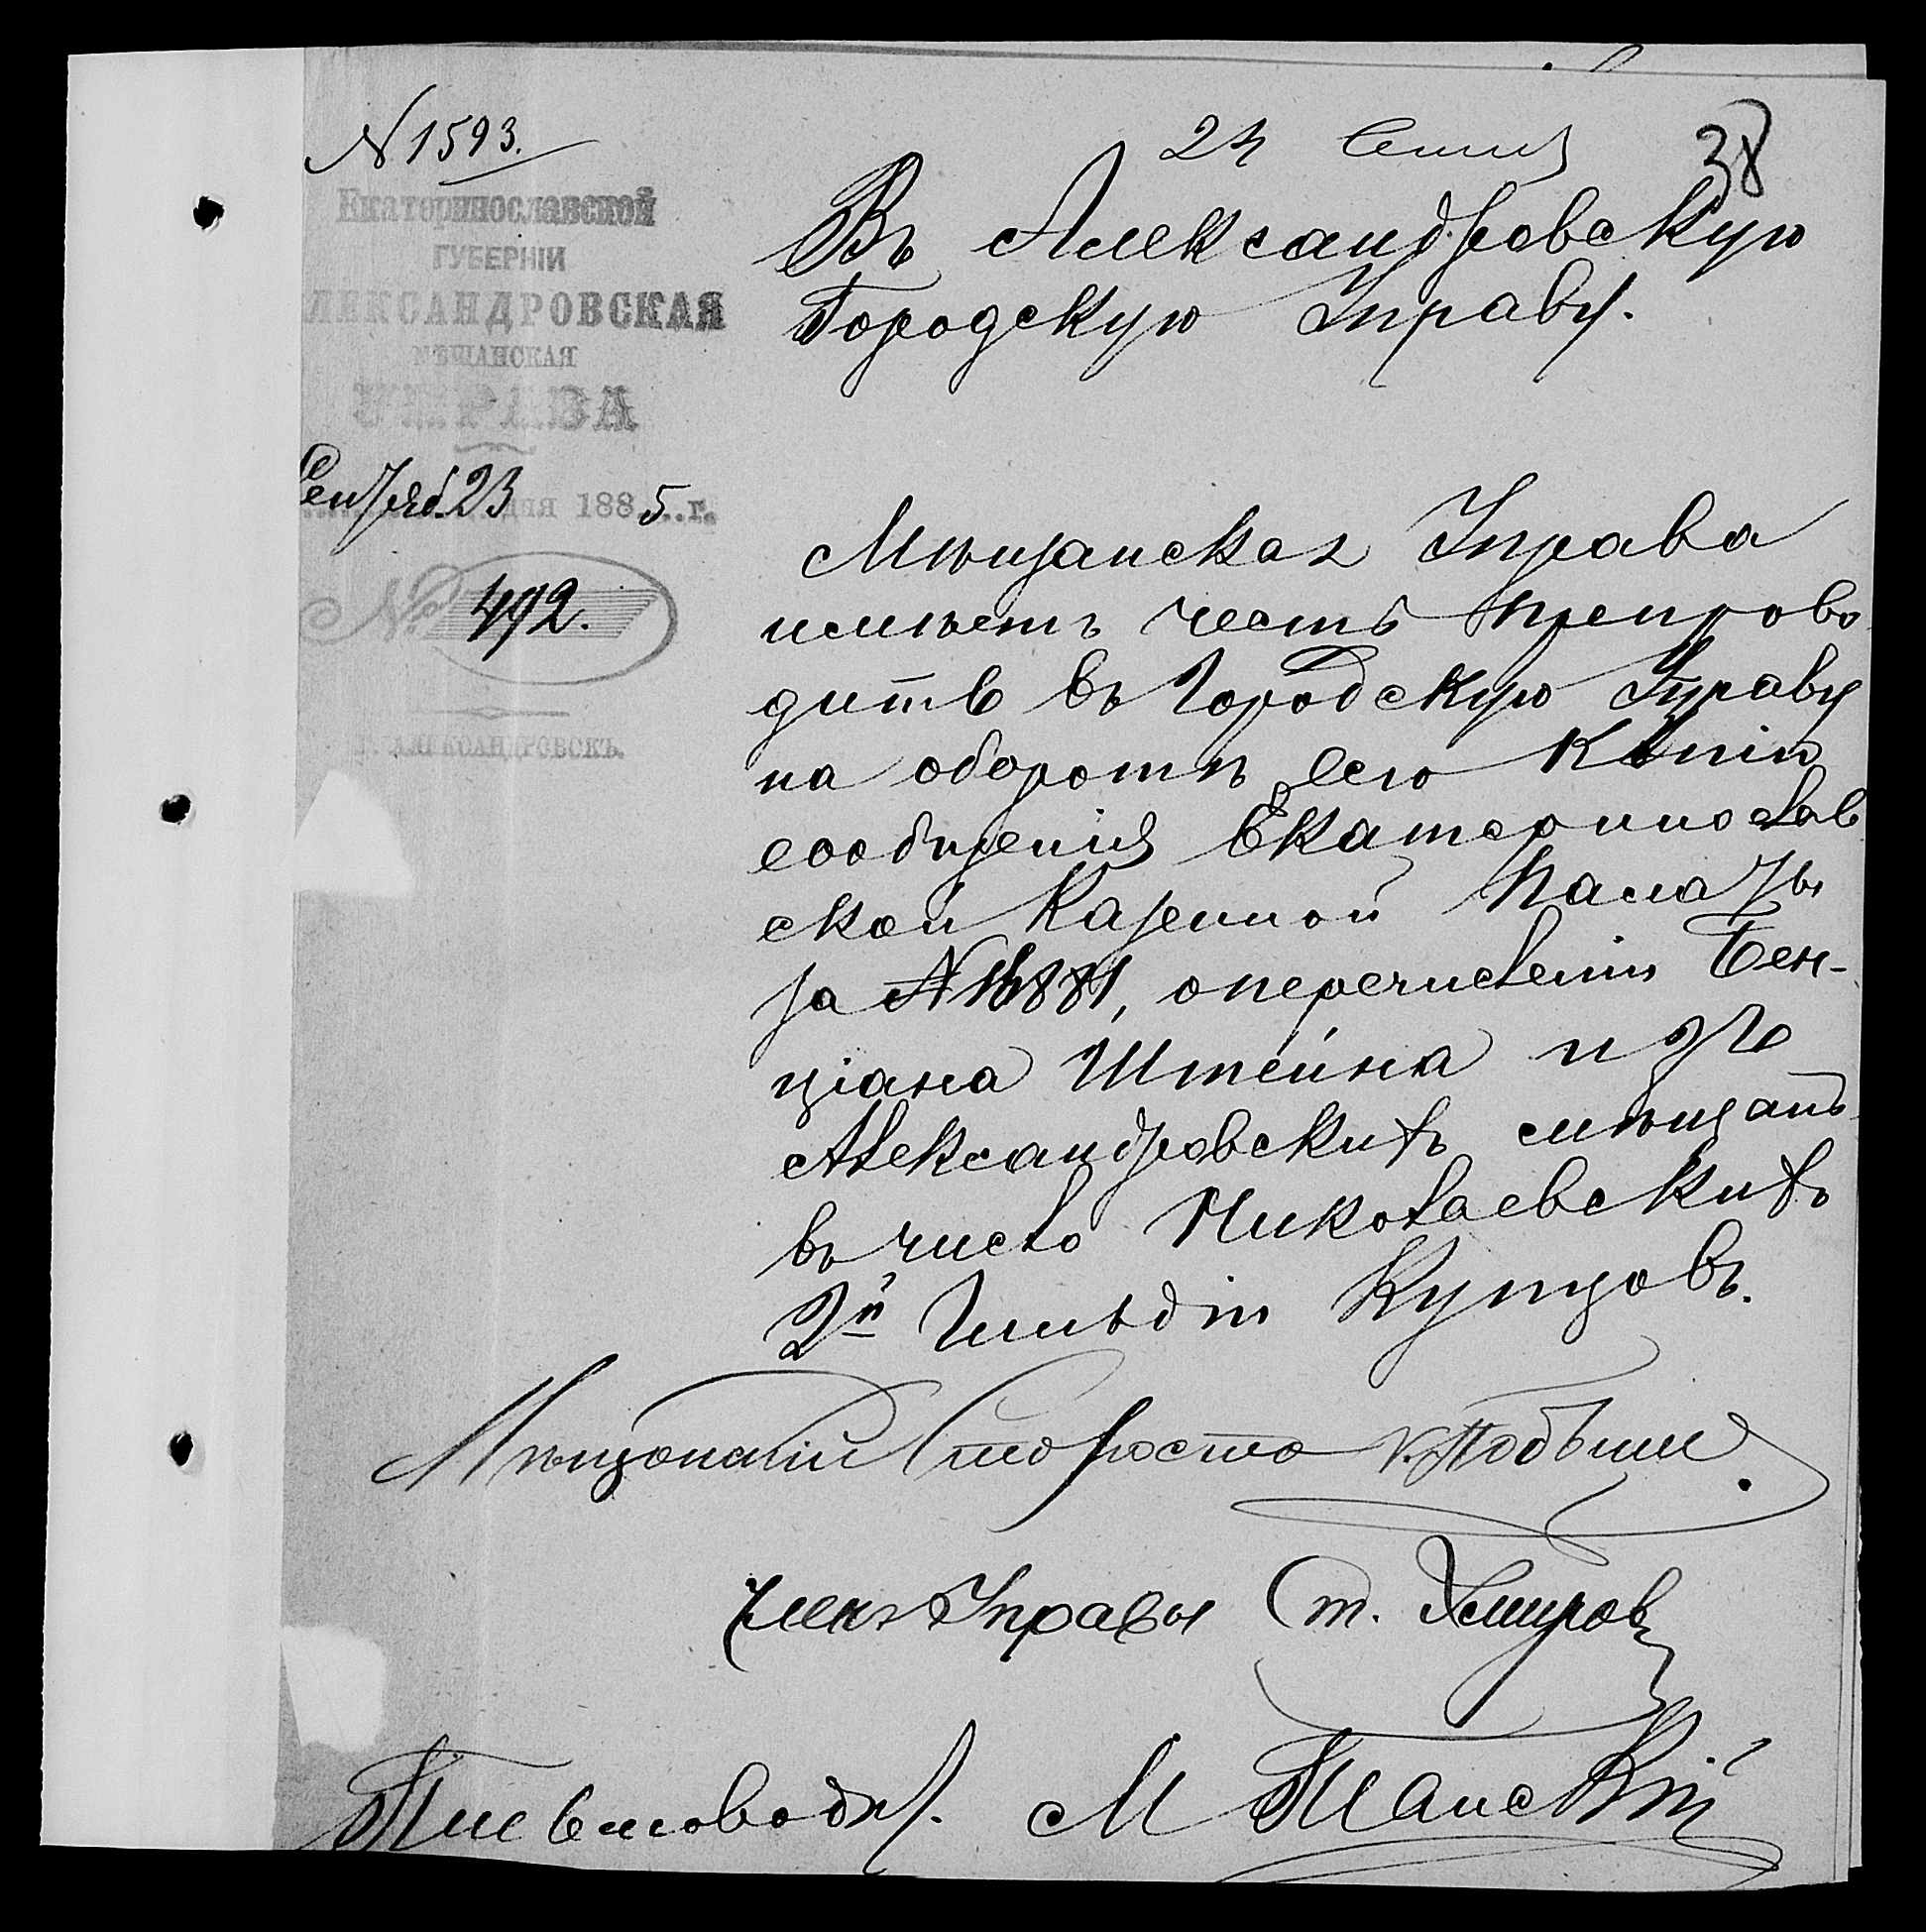 № 1593.
24 Сент
38
Екатеринославской
ГУБЕРНІИ
АЛЕКСАНДРОВСКАЯ
МѢЩАНСКАЯ
УПРАВА
Сентяб. 23 дня 1885 г.
№ 492.
Г. АЛЕКСАНДРОВСКЪ.
Въ Александровскую
Городскую Управу.
Мѣщанская Управа
имѣетъ честь препрово
дить въ Городскую Управу
на оборотѣ сего копію
сообщенія Екатеринослав
ской Казенной Палаты
за №, о перечисленіи Бен-
ціана Штейна изъ
Александровскихъ мѣщанъ
въ число Николаевскихъ
2й Гильдіи Купцовъ.
Мѣщанскій Староста
Членъ Управы Ст.
Письмоводит. М